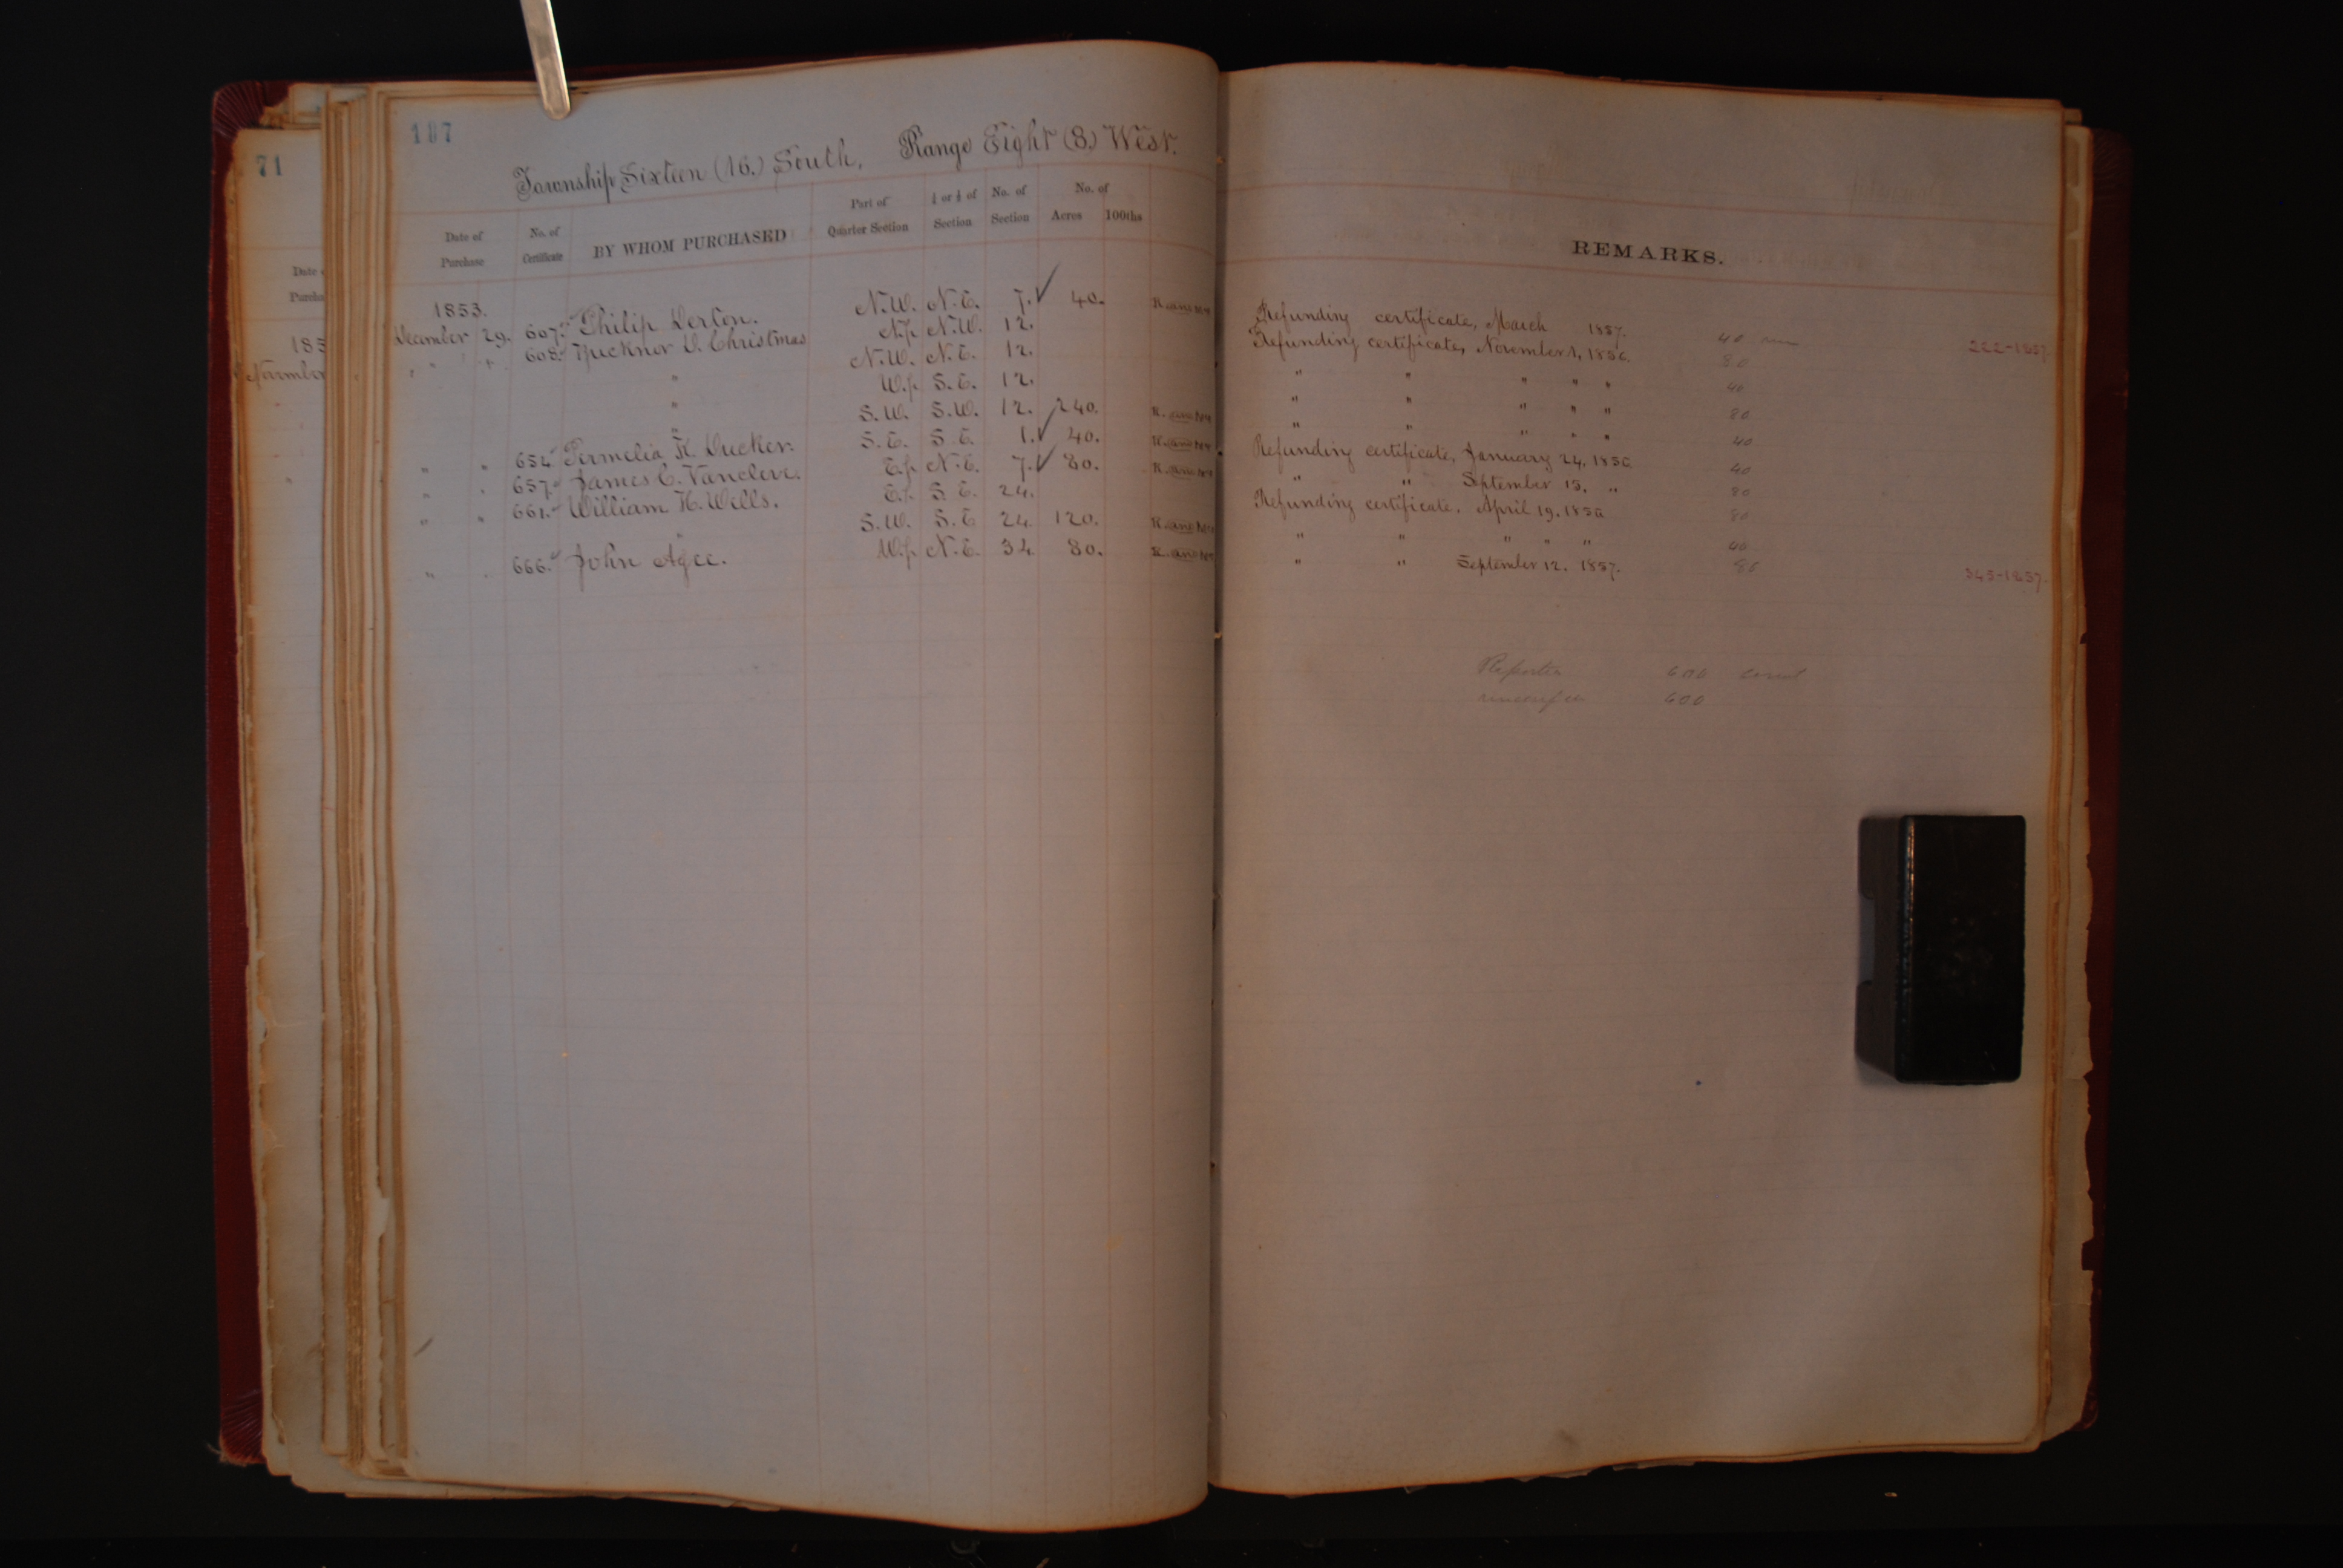 187
71
Township Sixteen (16.) South, Range Eight (8.) West.
Date of Purchase No. of Certificate BY WHOM PURCHASED Part of Quarter Section ¼ or ½ of Section No. of Section No. of Acres 100ths
REMARKS.
1853.
December 29. 607. Philip Derton. N.W. N.E. 7. ✓ 40. Refunding certificate, March 1857. 40 222-1857.
" " 608. Bucknor D. Christmas N.½ N.W. 12. Refunding certificate, November 1, 1856. 80
" N.W. N.E. 12. " " " " " 40
" W.½ S.E. 12. " " " " " 80
" S.W. S.W. 12. 240. " " " " " 40
" " 654. Permelia K. Ducker. S.E. S.E. 1. ✓ 40. Refunding certificate, January 24, 1856. 40
" " 657. James C. Vancleve. E.½ N.E. 7. ✓ 80. " " September 15, " 80
" " 661. William H. Wells. E.½ S.E. 24. Refunding certificate. April 19, 185 80
" S.W. S.E. 24. 120. " " " " " 40
" " 666. John Agee. W.½ N.E. 34. 80. " " September 12, 1857. 80 343-1857.
600
Date
Purcha
185